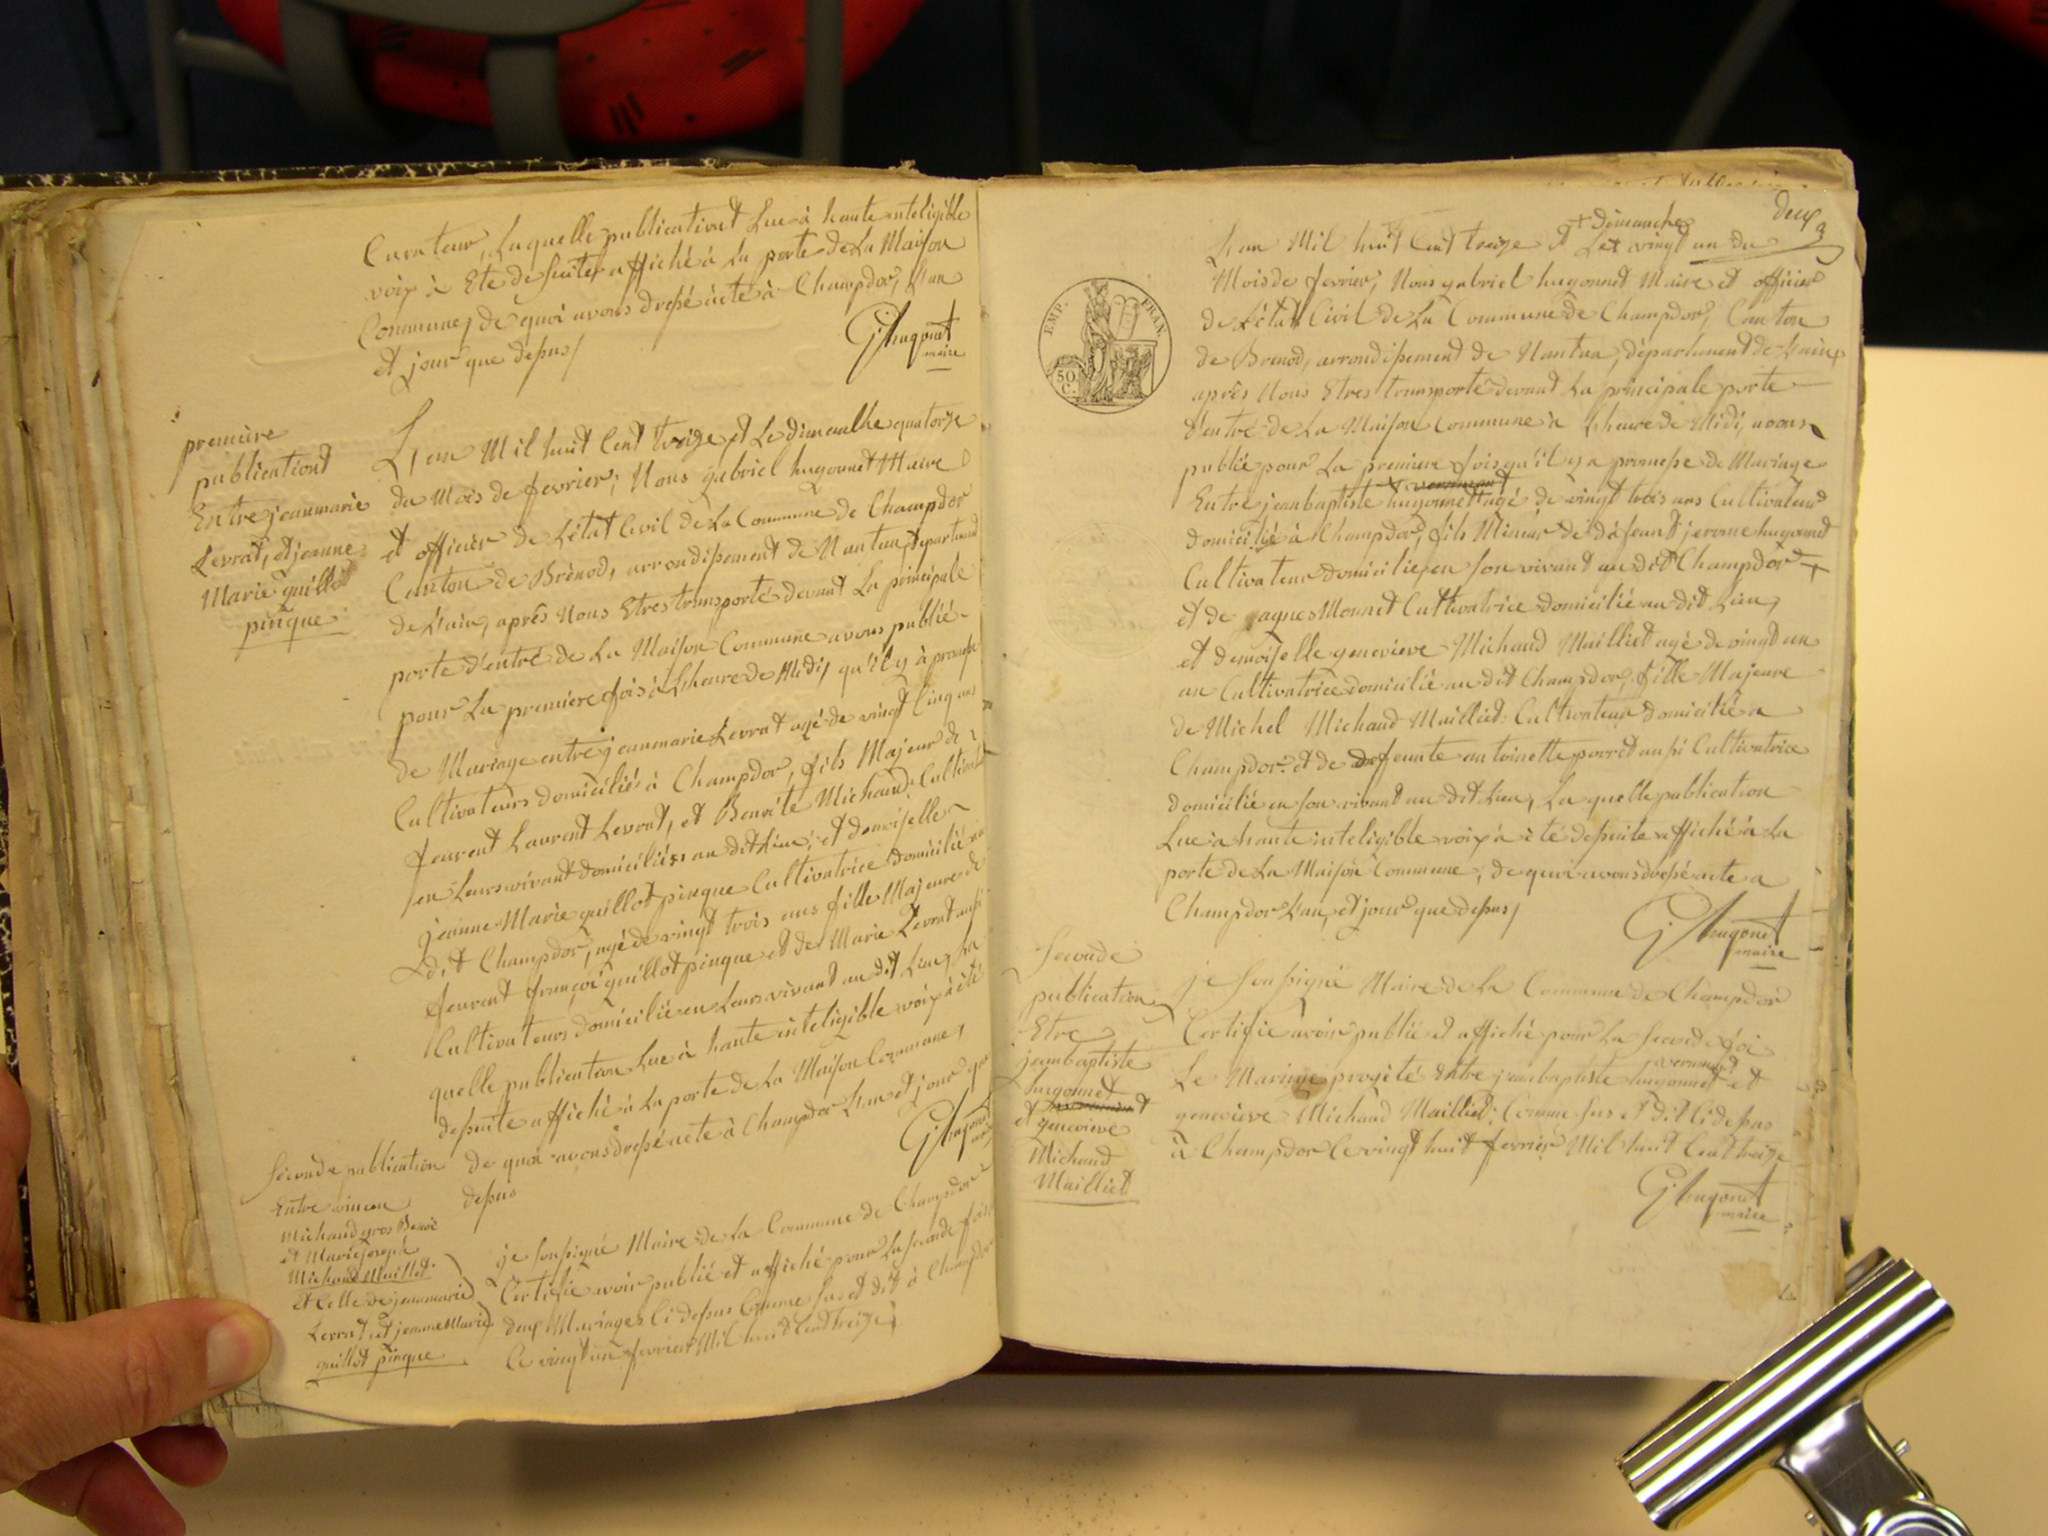 Curateur, Laquelle publicationt Lue à haute inteligible
voix à Eté de suiter affiché à La porte de La Maison
Commune, de quoi avons dressé acte à Champdor, L'an
et jour que dessus/
G. hugonet
maire
première
publicationt
Entre jeanmarie
Levrat, et jeanne
Marie guillot
pinque
L'an Mil huit Cent treize et Le dimanche quatorze
du Mois de fevrier; Nous gabriel hugonnet Maire
et officier de L'état Civil de La Commune de Champdor
Canton de Brénod, arrondissement de Nantua, département
de L'ain, aprês Nous Etres transporté devant La principale
porte d'entré de La Maison Commune avons publié
pour La première fois à L'heure de Midi, qu'il y à promesse
de Mariage entre jeanmarie Levrat agé de vingt Cinq ans
Cultivateurs domicilié à Champdor, fils Majeur de
feurent Laurent Levrat, et Benoite Michaud Cultivateurs
en Leurs vivant domiciliés au dit Lieu, et demoiselle
jeanne Marie guillot pinque Cultivatrice domicilié au
dit Champdor, agé de vingt trois ans fille Majeure de
feurent françoi guillot pinque et de Marie Levrat aussi
Cultivateurs domicilié en Leurs vivant au dit Lieu, La
quelle publication Lue à haute inteligible voix à été
de suite affiché à La porte de La Maison Commune,
de quoi avons drossé acte à Champdor L'an et jour que
dessus
G. hugonet
maire
Seconde publication
Entre
Michaud gros Benoi
et Marie joseph
Michaud Maillet
et Celle de jeanmarie
Levrat et jeanne Marie
guillot pinque
je soussigné Maire de La Commune de Champdor
Certifie avoir publié et affiché pour La seconde fois
deux Mariages Ci dessus Comme sus et dit à Champdor
Ce vingt un fevrier Mil huit Cent treize
deux
3
+ dimanche
L'an Mil huit Cent treize et Le+ vingt un du
Mois de fevrier, Nous gabriel hugonnet Maire et officier
de L'état Civil de La Commune de Champdor, Canton
de Brenod, arrondissement de Nantua, département de L'ain,
aprês Nous Etres transporté devant La principale porte
d'entré de La Maison Commune à L'heure de Midi, avons
publié pour La premiere fois qu'il y a promesse de Mariage
Entre jeanbaptiste hugonnet agé de vingt trois ans Cultivateur
domicilié à Champdor, fils Mineur de défeunt jerome hugonnet
Cultivateur domicilie, en son vivant au dit Champdor
et de agnes Monnet Cultivatrice domicilié au dit Lieu,
et demoiselle genevieve Michaud Mailliet agé de vingt un
an Cultivatrice domicilié au dit Champdor, fille Majeure
de Michel Michaud Mailliet Cultivateur domicilié a
Champdor et de defeunte antoinette porret aussi Cultivatrice
domicilié en son vivant au dit Lieu, La quelle publication
Lue a haute inteligible voix à été de suite affiché à La
porte de La Maison Commune, de quoi avons drossé acte a
Champdor L'an, et jour que dessus/
G. hugonet
maire
Seconde
publication
Etre
jeanbaptiste
hugonnet
et genevieve
Michaud
Mailliet
je soussigné Maire de La Commune de Champdor
Certifie avoir publié et affiché pour La second foi
Le Mariage progité entre jeanbaptiste hugonnet et
genevieve Michaud Mailliet Comme sus et dit Ci dessus
à Champdor Ce vingt huit fevrier Mil huit Cent treize
G. hugonet
maire
EMP. FRAN.
50
C.